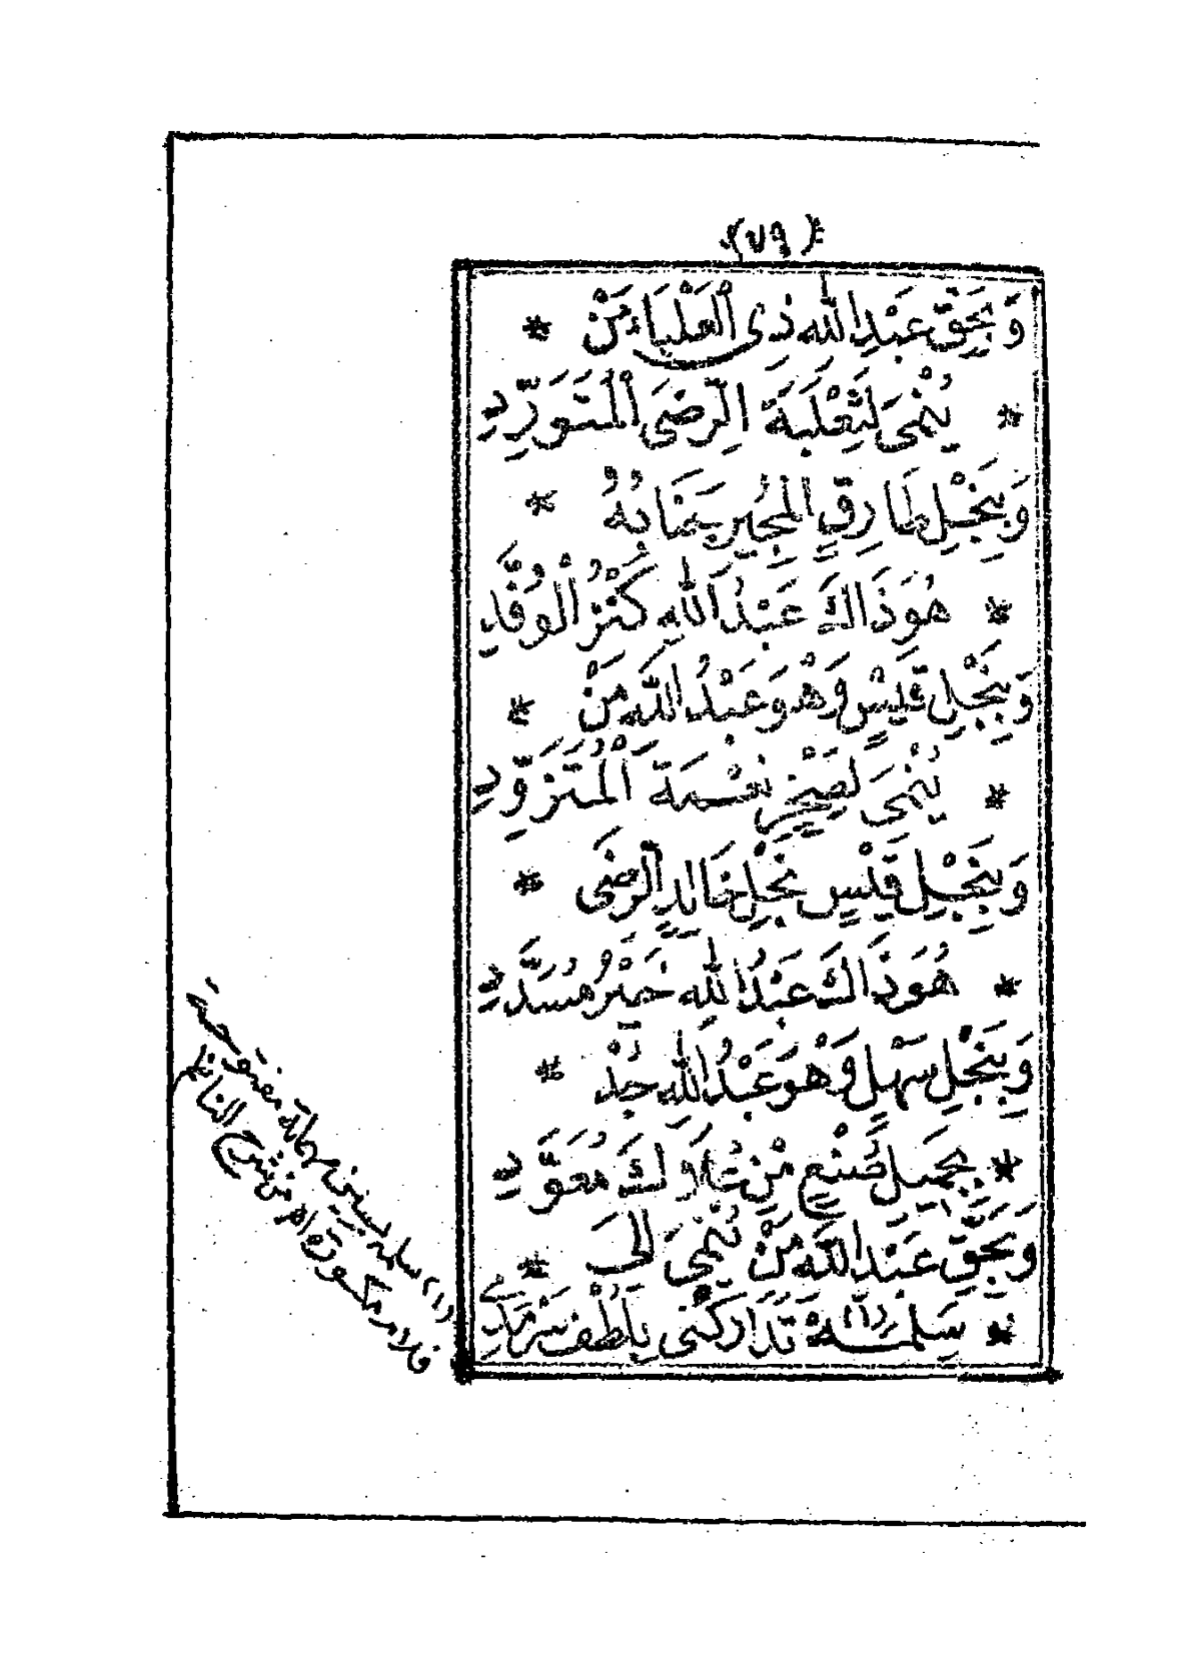 (٧٩)
وَبِحَقِّ عَبْدِ اللهِ ذِى الْعَلْيَاءِ مَنْ *
* يُنْمَى لِثَعْلَبَةَ الرِّضَى الْمُتَوَرِّدِ
وَبِنَجْلِ طَارِقٍ الْمُجِيرِ جَنَابُهُ
* هُوَ ذَاكَ عَبْدُ اللهِ كَنْزُ الْوُفَّدِ
وَبِنَجْلِ قَيْسٍ وَهْوَ عَبْدُ اللهِ مَنْ *
* يُنْمَى لِصَخْرٍ نِعْمَةَ الْمُتَزَوِّدِ
وَبِنَجْلِ قَيْسٍ نَجْلِ خَالِدٍ الرِّضَى *
* هُوَ ذَاكَ عَبْدُ اللهِ خَيْرُ مُسَدَّدِ
وَبِنَجْلِ سَهْلٍ وَهْوَ عَبْدُ اللهِ جُدْ *
* بِجَمِيلِ صُنْعٍ مِنْ عُلَاكَ مُعَوَّدِ
وَبِحَقِّ عَبْدِ اللهِ مَنْ يُنْمَى إِلَى *
* سَلِمَةْ (١) تَدَارَكْنِى بِلُطْفٍ سَرْمَدِى
(١) سلمة بسين مهملة مفتوحة
فلام مكسورة اهـ من شرح الناظم